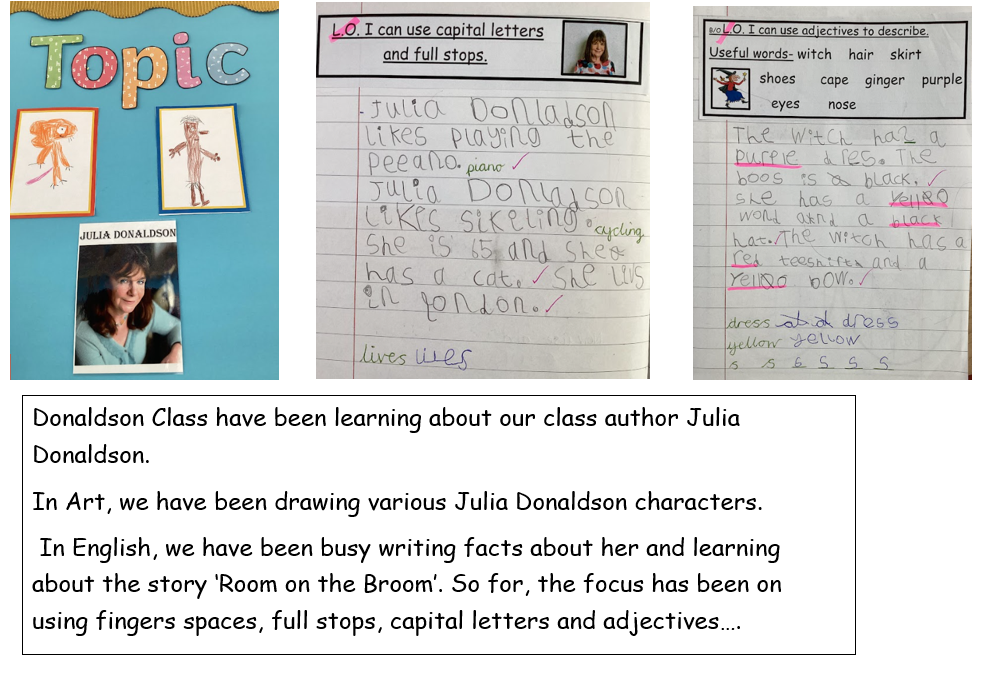 Topic
JULIA DONALDSON
L.O. I can use capital letters
and full stops.
Julia Donladson
likes playing the
peeano. piano
Julia Donladson
likes sikeling. cycling
She is 65 and She
has a cat. She livs
in london.
lives lives
L.O. I can use adjectives to describe.
Useful words- witch hair skirt
shoes cape ginger purple
eyes nose
The witch has a
purple dres. The
boos is black.
she has a yelloo
wond and a black
hat. The witch has a
red teeshirt and a
yelloo bow.
dress dress
yellow yellow
s s s s s s
Donaldson Class have been learning about our class author Julia
Donaldson.
In Art, we have been drawing various Julia Donaldson characters.
In English, we have been busy writing facts about her and learning
about the story ‘Room on the Broom’. So for, the focus has been on
using fingers spaces, full stops, capital letters and adjectives….